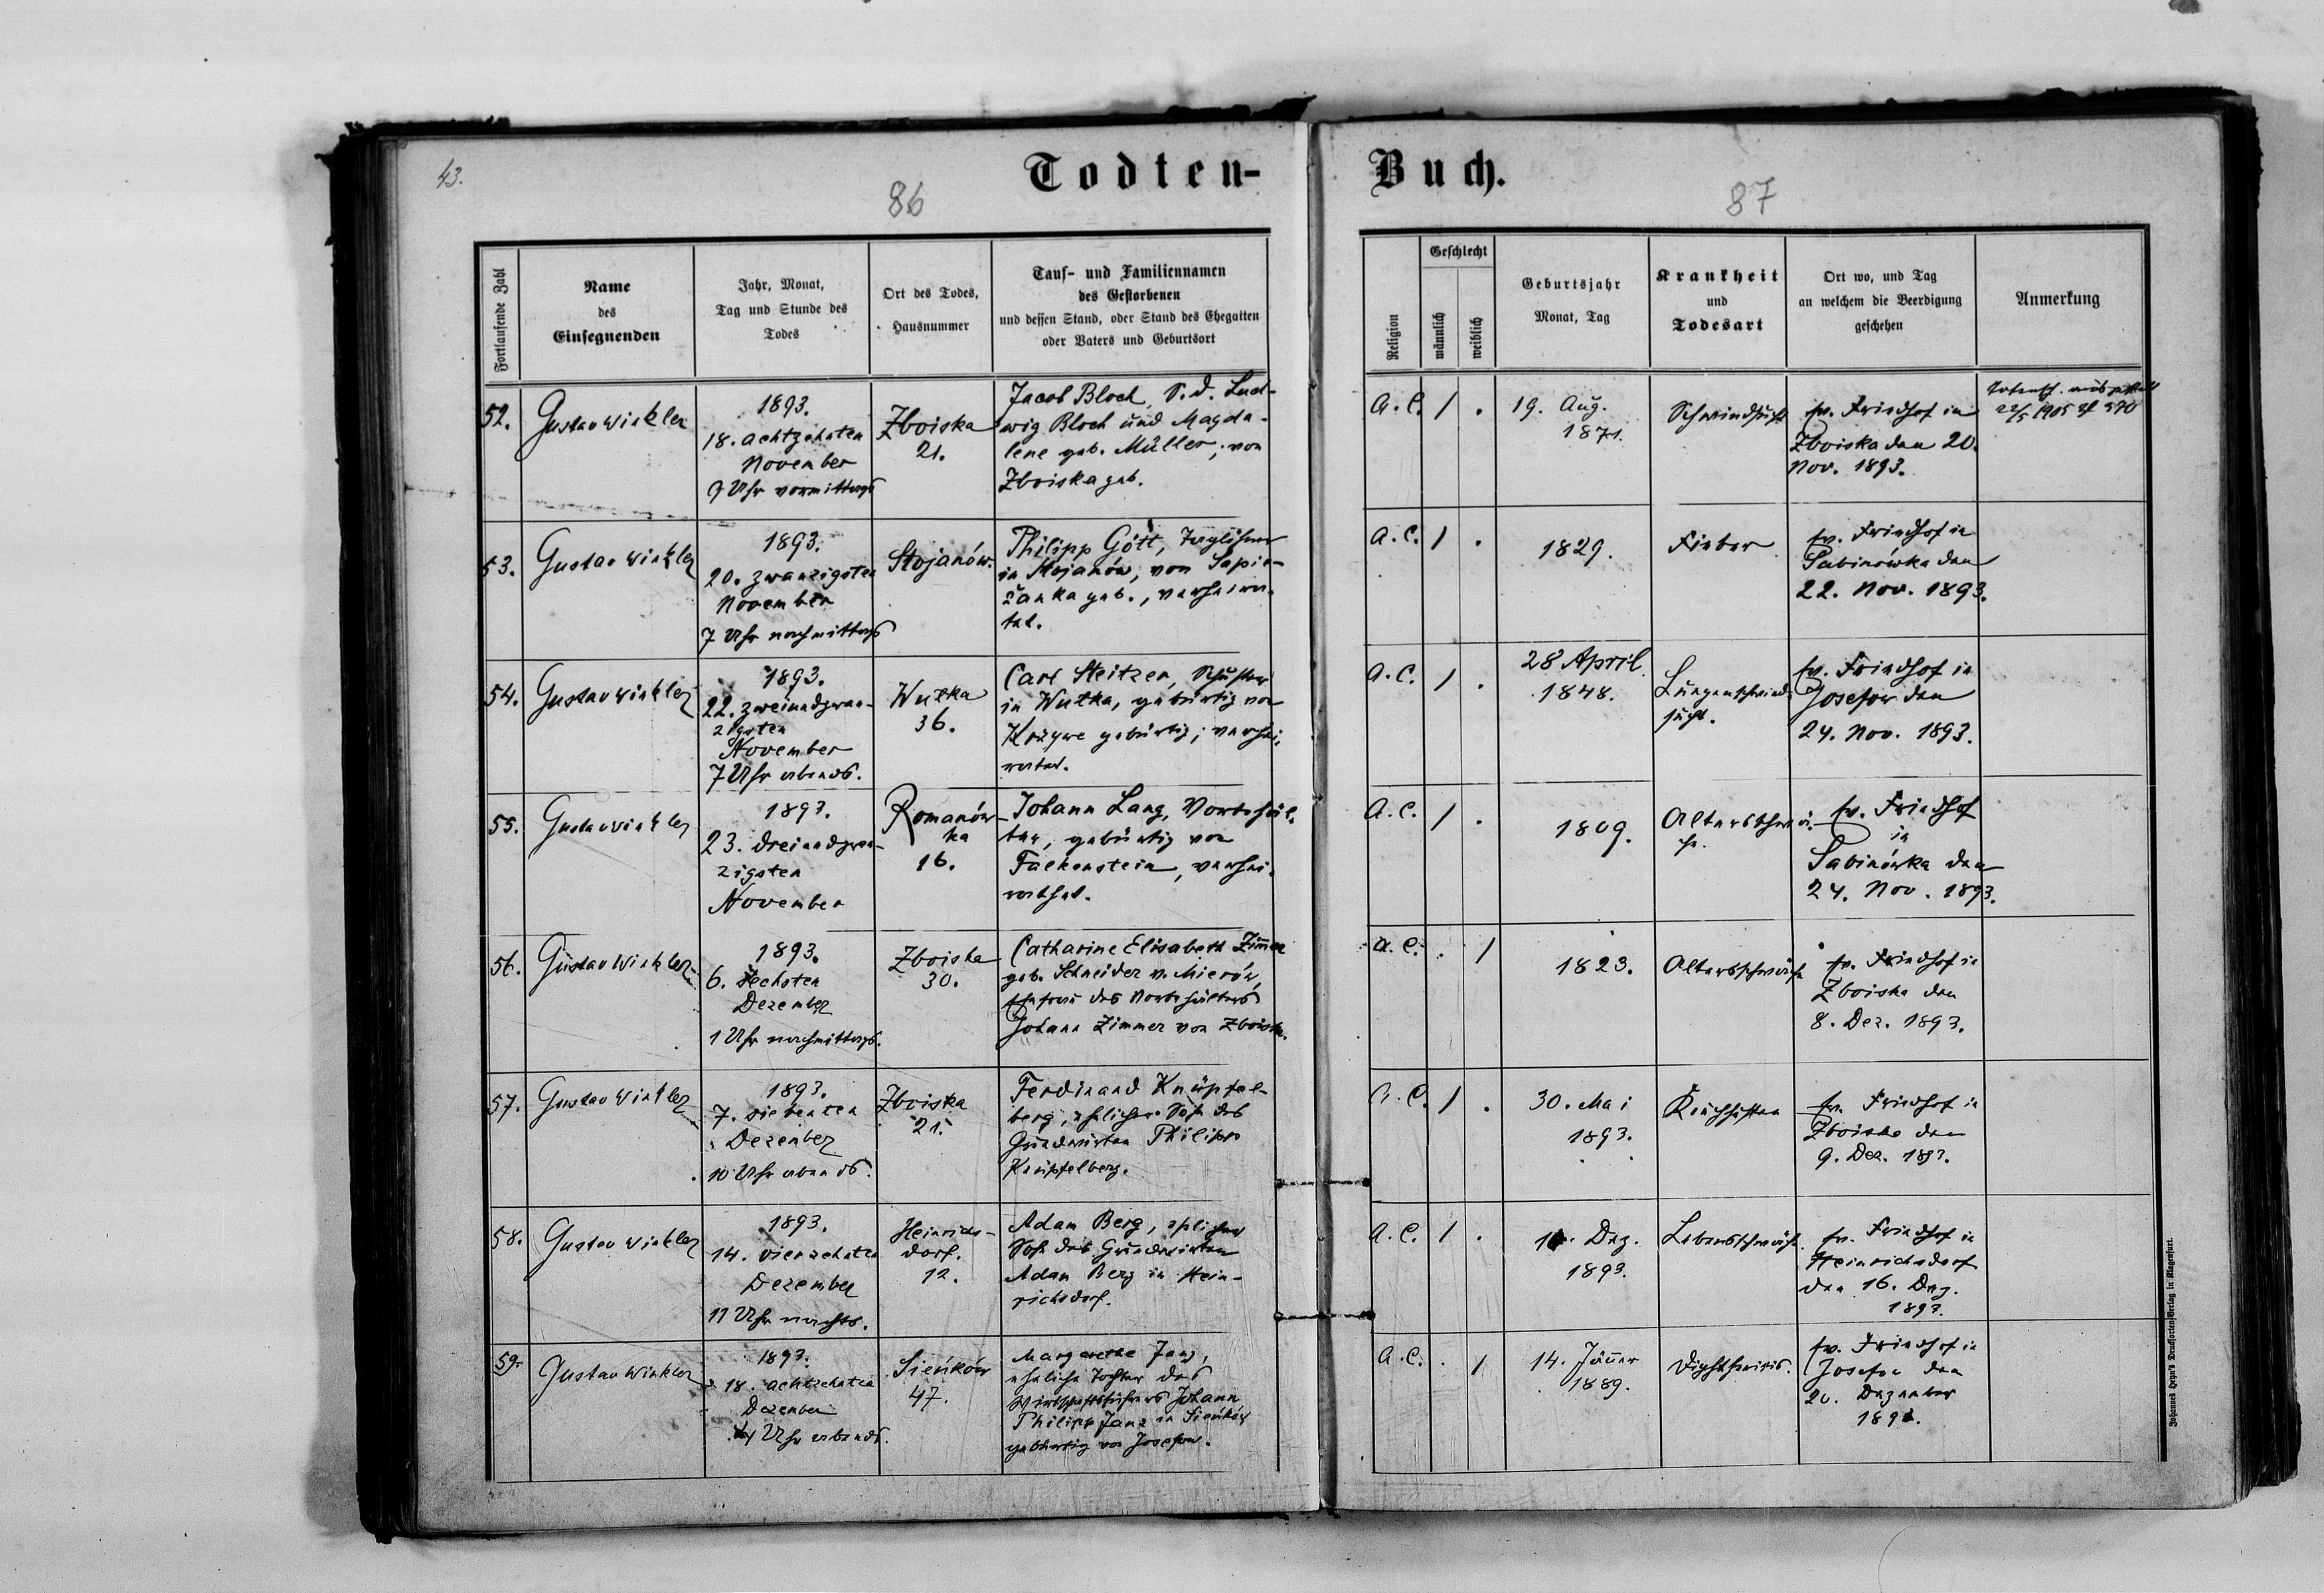 43.
Todten-
Buch.
86
87
Fortlaufende Zahl
Name
des
Einsegnenden
Jahr, Monat,
Tag und Stunde des
Todes
Ort des Todes,
Hausnummer
Tauf- und Familiennamen
des Gestorbenen
und dessen Stand, oder Stand des Ehegatten
oder Vaters und Geburtsort
Religion
Geschlecht
männlich
weiblich
Geburtsjahr
Monat, Tag
Krankheit
und
Todesart
Ort wo, und Tag
an welchem die Beerdigung
geschehen
Anmerkung
52.
Gustav Winkler
1893.
18. achtzehnten
November
9 Uhr vormittags
Zboiska
21.
Jacob Bloch, S. d. Lud-
wig Bloch und Magda-
lene geb. Müller, von
Zboiska geb.
A. C.
1
.
19. Aug.
1871.
Schwindsucht
ev. Friedhof in
Zboiska den 20.
Nov. 1893.
22/5 1905 Zl 570
53.
Gustav Winkler
1893.
20. zwanzigsten
November
7 Uhr nachmittags
Stojanów.
Philipp Gött, Taglöhner
in Stojanów, von Sapie-
żanka geb., verheira-
tet.
A. C.
1
.
1829.
Fieber
ev. Friedhof in
Sabinówka den
22. Nov. 1893.
54.
Gustav Winkler
1893.
22. zweiundzwan-
zigsten
November
7 Uhr abends.
Wutka
36.
Carl Steitzer, Schuster
in Wutka, gebürtig von
Krzywe gebürtig; verhei-
ratet.
A. C.
1
.
28 April
1848.
Lungenschwind-
sucht.
ev. Friedhof in
Josefow den
24. Nov. 1893.
55.
Gustav Winkler
1893.
23. dreiundzwan-
zigsten
November
Romanów-
ka
16.
Johann Lang, Vorbehäl-
ter, gebürtig von
Falkenstein, verhei-
rathet.
A. C.
1
.
1809.
Altersschwä-
che.
ev. Friedhof
in
Sabinówka den
24. Nov. 1893.
56.
Gustav Winkler
1893.
6. sechsten
Dezember
1 Uhr nachmittags.
Zboiska
30.
Catharine Elisabeth Zimmer
geb. Schneider v. Mierów,
Ehefrau des Vorbehälters
Johann Zimmer von Zboiska.
A. C.
.
1
1823.
Altersschwäche
ev. Friedhof in
Zboiska den
8. Dez. 1893.
57.
Gustav Winkler
1893.
7. siebenten
Dezember
10 Uhr abends.
Zboiska
21.
Ferdinand Knüpfel-
berg, ehelicher Sohn des
Grundwirten Philipp
Knüpfelberg.
A. C.
1
.
30. Mai
1893.
Keuchhusten
ev. Friedhof in
Zboiska den
9. Dez. 1893.
58.
Gustav Winkler
1893.
14. vierzehnten
Dezember
11 Uhr nachts.
Heinrichs-
dorf.
12.
Adam Berg, ehelicher
Sohn des Grundwirten
Adam Berg in Hein-
richsdorf.
A. C.
1
.
Dez.
1893.
Lebensschwäche
ev. Friedhof in
Heinrichsdorf
den 16. Dez.
1893.
59.
Gustav Winkler
1893.
18. achtzehnten
Dezember
Uhr abends.
Sieńków
47.
Margarethe Janz,
eheliche Tochter des
Wirtschaftsführers Johann
Philipp Janz in Sieńków
gebürtig von Josefow.
A. C.
.
1
14. Jänner
1889.
Diphtheritis.
ev. Friedhof in
Josefow den
20. Dezember
1893.
Johannes Heyn's Drucksorten-Verlag in Klagenfurt.